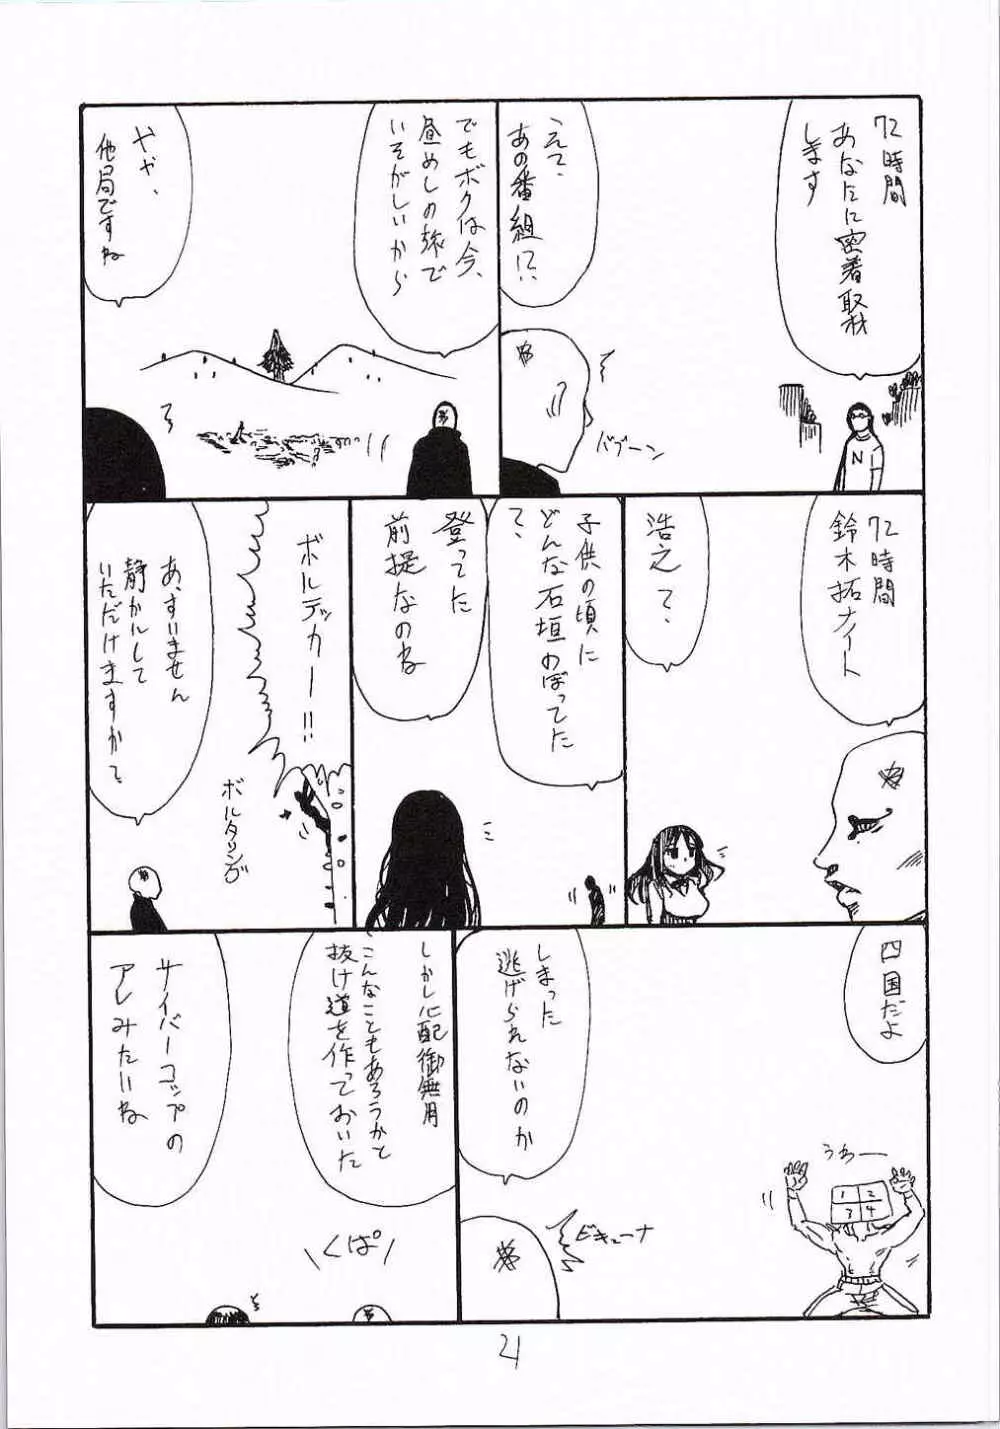 72時間
あなたに密着取材
します
N
えて、
あの番組!?
バブーン
でもボクは今、
昼めしの旅で
いそがしいから
やや、
他局ですね
72時間
鈴木拓ナイト
浩之て、
子供の頃に
どんな石垣のぼってた
て、
登ってた
前提なのね
ボルデッカー!!
ボルタリング
あ、すいません
静かにして
いただけますかて、
四国だよ
うわー
1 2
3 4
しまった
逃げられないのか
ビキューナ
しかし心配御無用
こんなこともあろうかと
抜け道を作っておいた
くぱぁ
サイバーコップの
アレみたいね
21